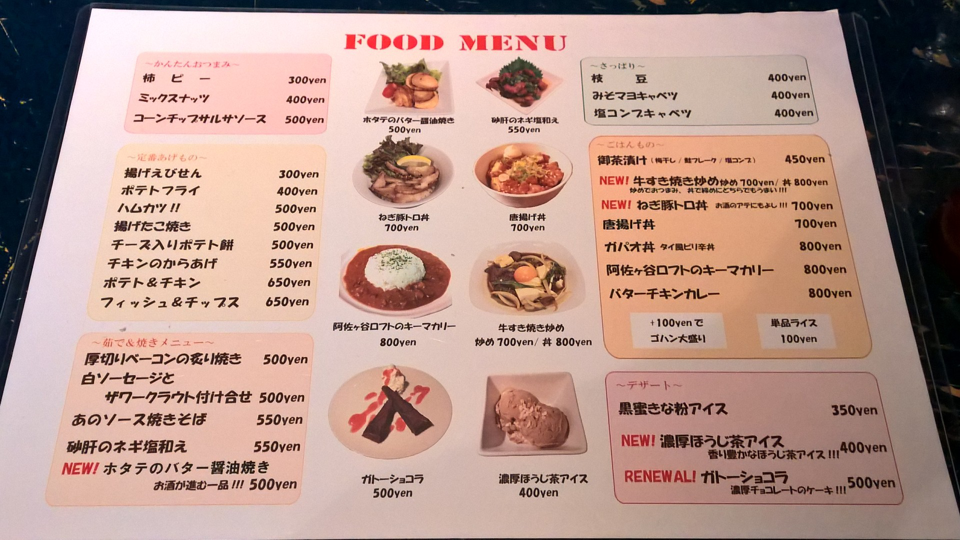 FOOD MENU
～かんたんおつまみ～
柿ピー 300yen
ミックスナッツ 400yen
コーンチップサルサソース 500yen
～定番あげもの～
揚げえびせん 300yen
ポテトフライ 400yen
ハムカツ!! 500yen
揚げたこ焼き 500yen
チーズ入りポテト餅 500yen
チキンのからあげ 550yen
ポテト＆チキン 650yen
フィッシュ＆チップス 650yen
～茹で＆焼きメニュー～
厚切りベーコンの炙り焼き 500yen
白ソーセージと
ザワークラウト付け合せ 500yen
あのソース焼きそば 550yen
砂肝のネギ塩和え 550yen
NEW! ホタテのバター醤油焼き
お酒が進む一品!!! 500yen
ホタテのバター醤油焼き
500yen
砂肝のネギ塩和え
550yen
ねぎ豚トロ丼
700yen
唐揚げ丼
700yen
阿佐ヶ谷ロフトのキーマカリー
800yen
牛すき焼き炒め
炒め 700yen/ 丼 800yen
ガトーショコラ
500yen
濃厚ほうじ茶アイス
400yen
～さっぱり～
枝豆 400yen
みそマヨキャベツ 400yen
塩コンブキャベツ 400yen
～ごはんもの～
御茶漬け（梅干し / 鮭フレーク / 塩コンブ） 450yen
NEW! 牛すき焼き炒め 炒め 700yen/ 丼 800yen
炒めでおつまみ、丼で締めにどちらでもうまい!!!
NEW! ねぎ豚トロ丼 お酒のアテにもよし!!! 700yen
唐揚げ丼 700yen
ガパオ丼 タイ風ピリ辛丼 800yen
阿佐ヶ谷ロフトのキーマカリー 800yen
バターチキンカレー 800yen
+100yen で
ゴハン大盛り
単品ライス
100yen
～デザート～
黒蜜きな粉アイス 350yen
NEW! 濃厚ほうじ茶アイス
香り豊かなほうじ茶アイス!!! 400yen
RENEWAL! ガトーショコラ
濃厚チョコレートのケーキ!!! 500yen